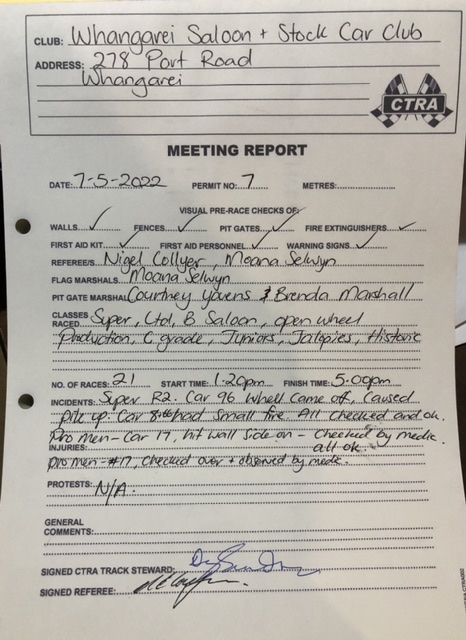 CLUB: Whangarei Saloon + Stock Car Club
ADDRESS: 278 Port Road
Whangarei
CTRA
MEETING REPORT
DATE: 7-5-2022 PERMIT NO: 7 METRES:
VISUAL PRE-RACE CHECKS OF:
WALLS ✓ FENCES ✓ PIT GATES ✓ FIRE EXTINGUISHERS ✓
FIRST AID KIT ✓ FIRST AID PERSONNEL ✓ WARNING SIGNS ✓
REFEREE/S Nigel Collyer, Moana Selwyn
FLAG MARSHALS Moana Selwyn
PIT GATE MARSHAL Courtney Youens & Brenda Marshall
CLASSES RACED: Super, Ltd, B Saloon, open wheel
Production, C grade, Juniors, Jalopies, Historic
NO. OF RACES: 21 START TIME: 1.20pm FINISH TIME: 5.00pm
INCIDENTS: Super R2. Car 96 wheel came off, caused
pile up. Car had small fire. All checked and ok.
Pro men - Car 17, hit wall side on - Checked by medic.
all ok.
INJURIES:
pro men - #17, checked over + observed by medic.
PROTESTS: N/A.
GENERAL
COMMENTS:
SIGNED CTRA TRACK STEWARD:
SIGNED REFEREE: